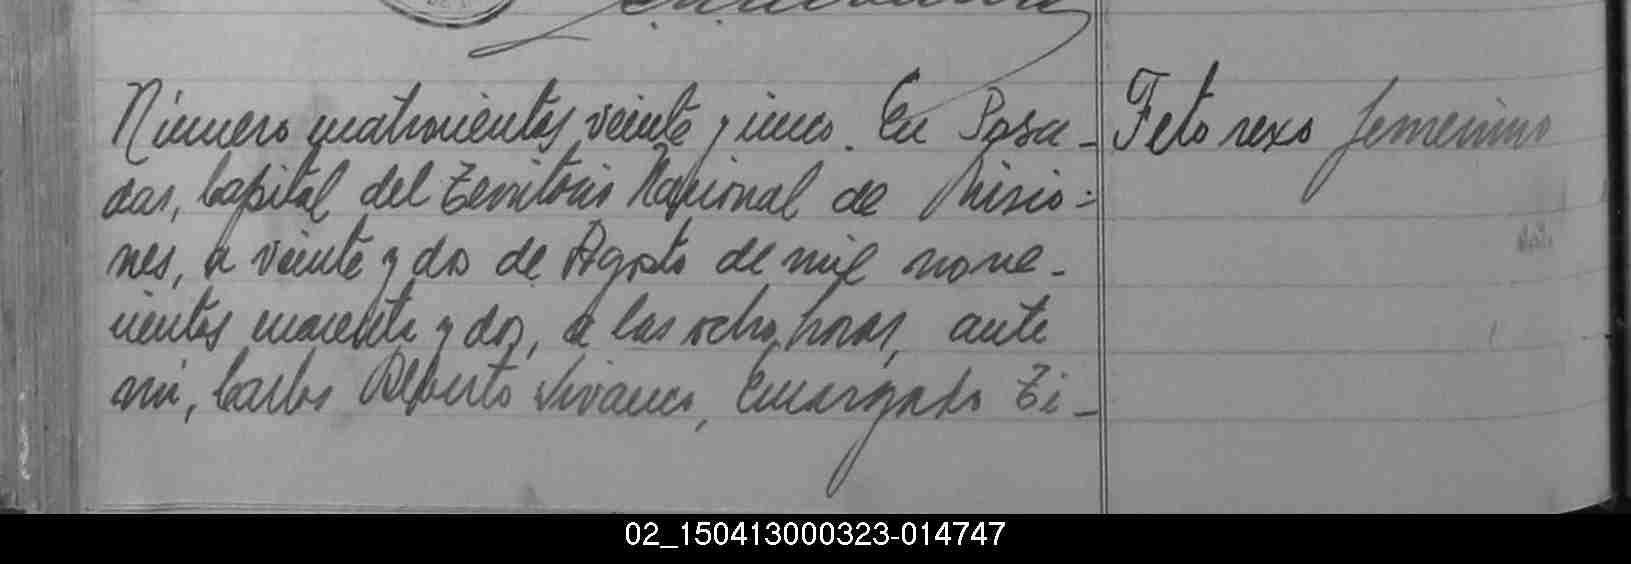 Número cuatrocientos veinte y cinco. En Posa-
das, Capital del Territorio Nacional de Misio-
nes, a veinte y dos de Agosto de mil nove-
cientos cuarenta y dos, a las ocho horas, ante
mi, Carlos Alberto Vivanco, Encargado Ti-
Feto sexo femenino
02_150413000323-014747